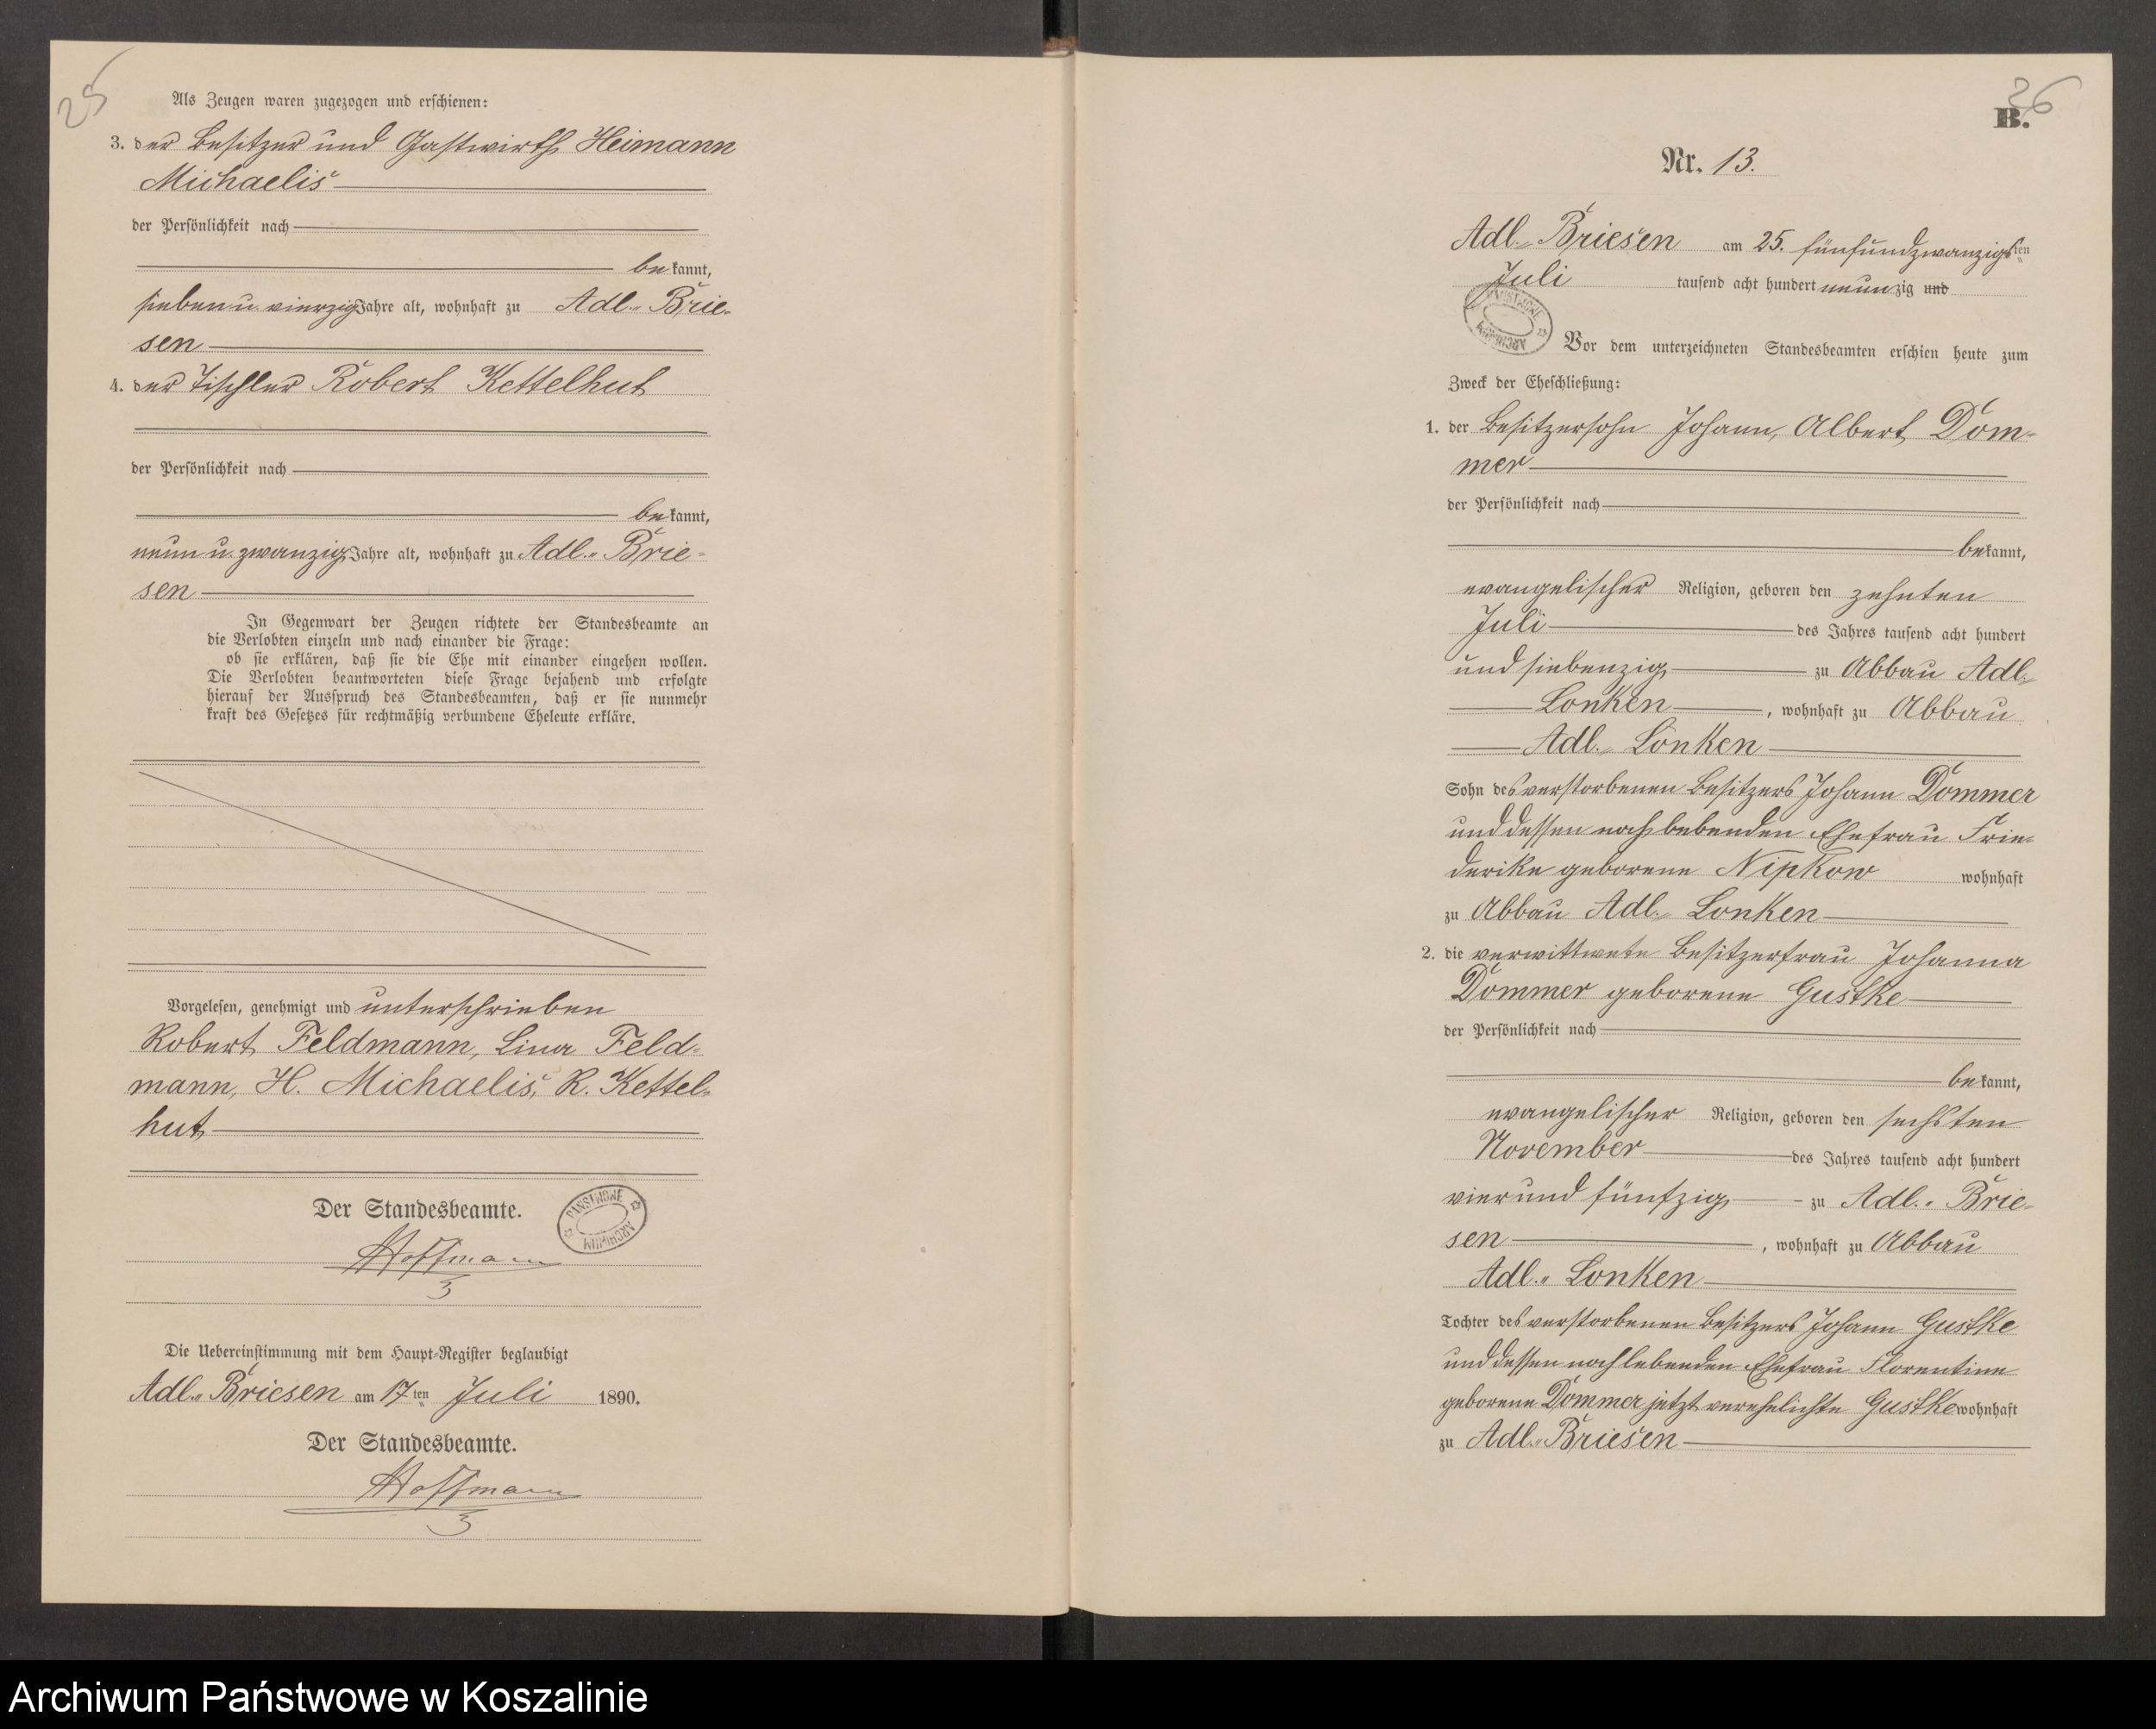 25
Als Zeugen waren zugezogen und erschienen:
3. der Besitzer und Gastwirth Heimann
Michaelis
der Persönlichkeit nach
bekannt,
sieben u. vierzig Jahre alt, wohnhaft zu Adl. Brie-
sen
4. der Tischler Robert Kettelhut
der Persönlichkeit nach
bekannt,
neun u. zwanzig Jahre alt, wohnhaft zu Adl. Brie-
sen
In Gegenwart der Zeugen richtete der Standesbeamte an
die Verlobten einzeln und nach einander die Frage:
ob sie erklären, daß sie die Ehe mit einander eingehen wollen.
Die Verlobten beantworteten diese Frage bejahend und erfolgte
hierauf der Ausspruch des Standesbeamten, daß er sie nunmehr
kraft des Gesetzes für rechtmäßig verbundene Eheleute erkläre.
Vorgelesen, genehmigt und unterschrieben
Robert Feldmann, Lina Feld-
mann, H. Michaelis, R. Kettel-
hut
Der Standesbeamte.
PAŃSTWOWE ARCHIWUM
Hoffmann
Die Uebereinstimmung mit dem Haupt-Register beglaubigt
Adl. Briesen am 17ten Juli 1890.
Der Standesbeamte.
Hoffmann
26
B.
Nr. 13.
Adl. Briesen am 25. fünfundzwanzigsten
Juli tausend acht hundert neunzig und
PAŃSTWOWE ARCHIWUM
Vor dem unterzeichneten Standesbeamten erschien heute zum
Zweck der Eheschließung:
1. der Besitzersohn Johann, Albert Dom-
mer
der Persönlichkeit nach
bekannt,
evangelischer Religion, geboren den zehnten
Juli des Jahres tausend acht hundert
und siebenzig zu Abbau Adl.
Lonken, wohnhaft zu Abbau
Adl. Lonken
Sohn des verstorbenen Besitzers Johann Dommer
und dessen noch lebenden Ehefrau Frie-
derike geborene Nipkow wohnhaft
zu Abbau Adl. Lonken
2. die verwittwete Besitzerfrau Johanna
Dommer geborene Gustke
der Persönlichkeit nach
bekannt,
evangelischer Religion, geboren den sechsten
November des Jahres tausend acht hundert
vier und fünfzig zu Adl. Brie-
sen, wohnhaft zu Abbau
Adl. Lonken
Tochter des verstorbenen Besitzers Johann Gustke
und dessen noch lebenden Ehefrau Florentine
geborene Dommer jetzt verehelichte Gustke wohnhaft
zu Adl. Briesen
Archiwum Państwowe w Koszalinie